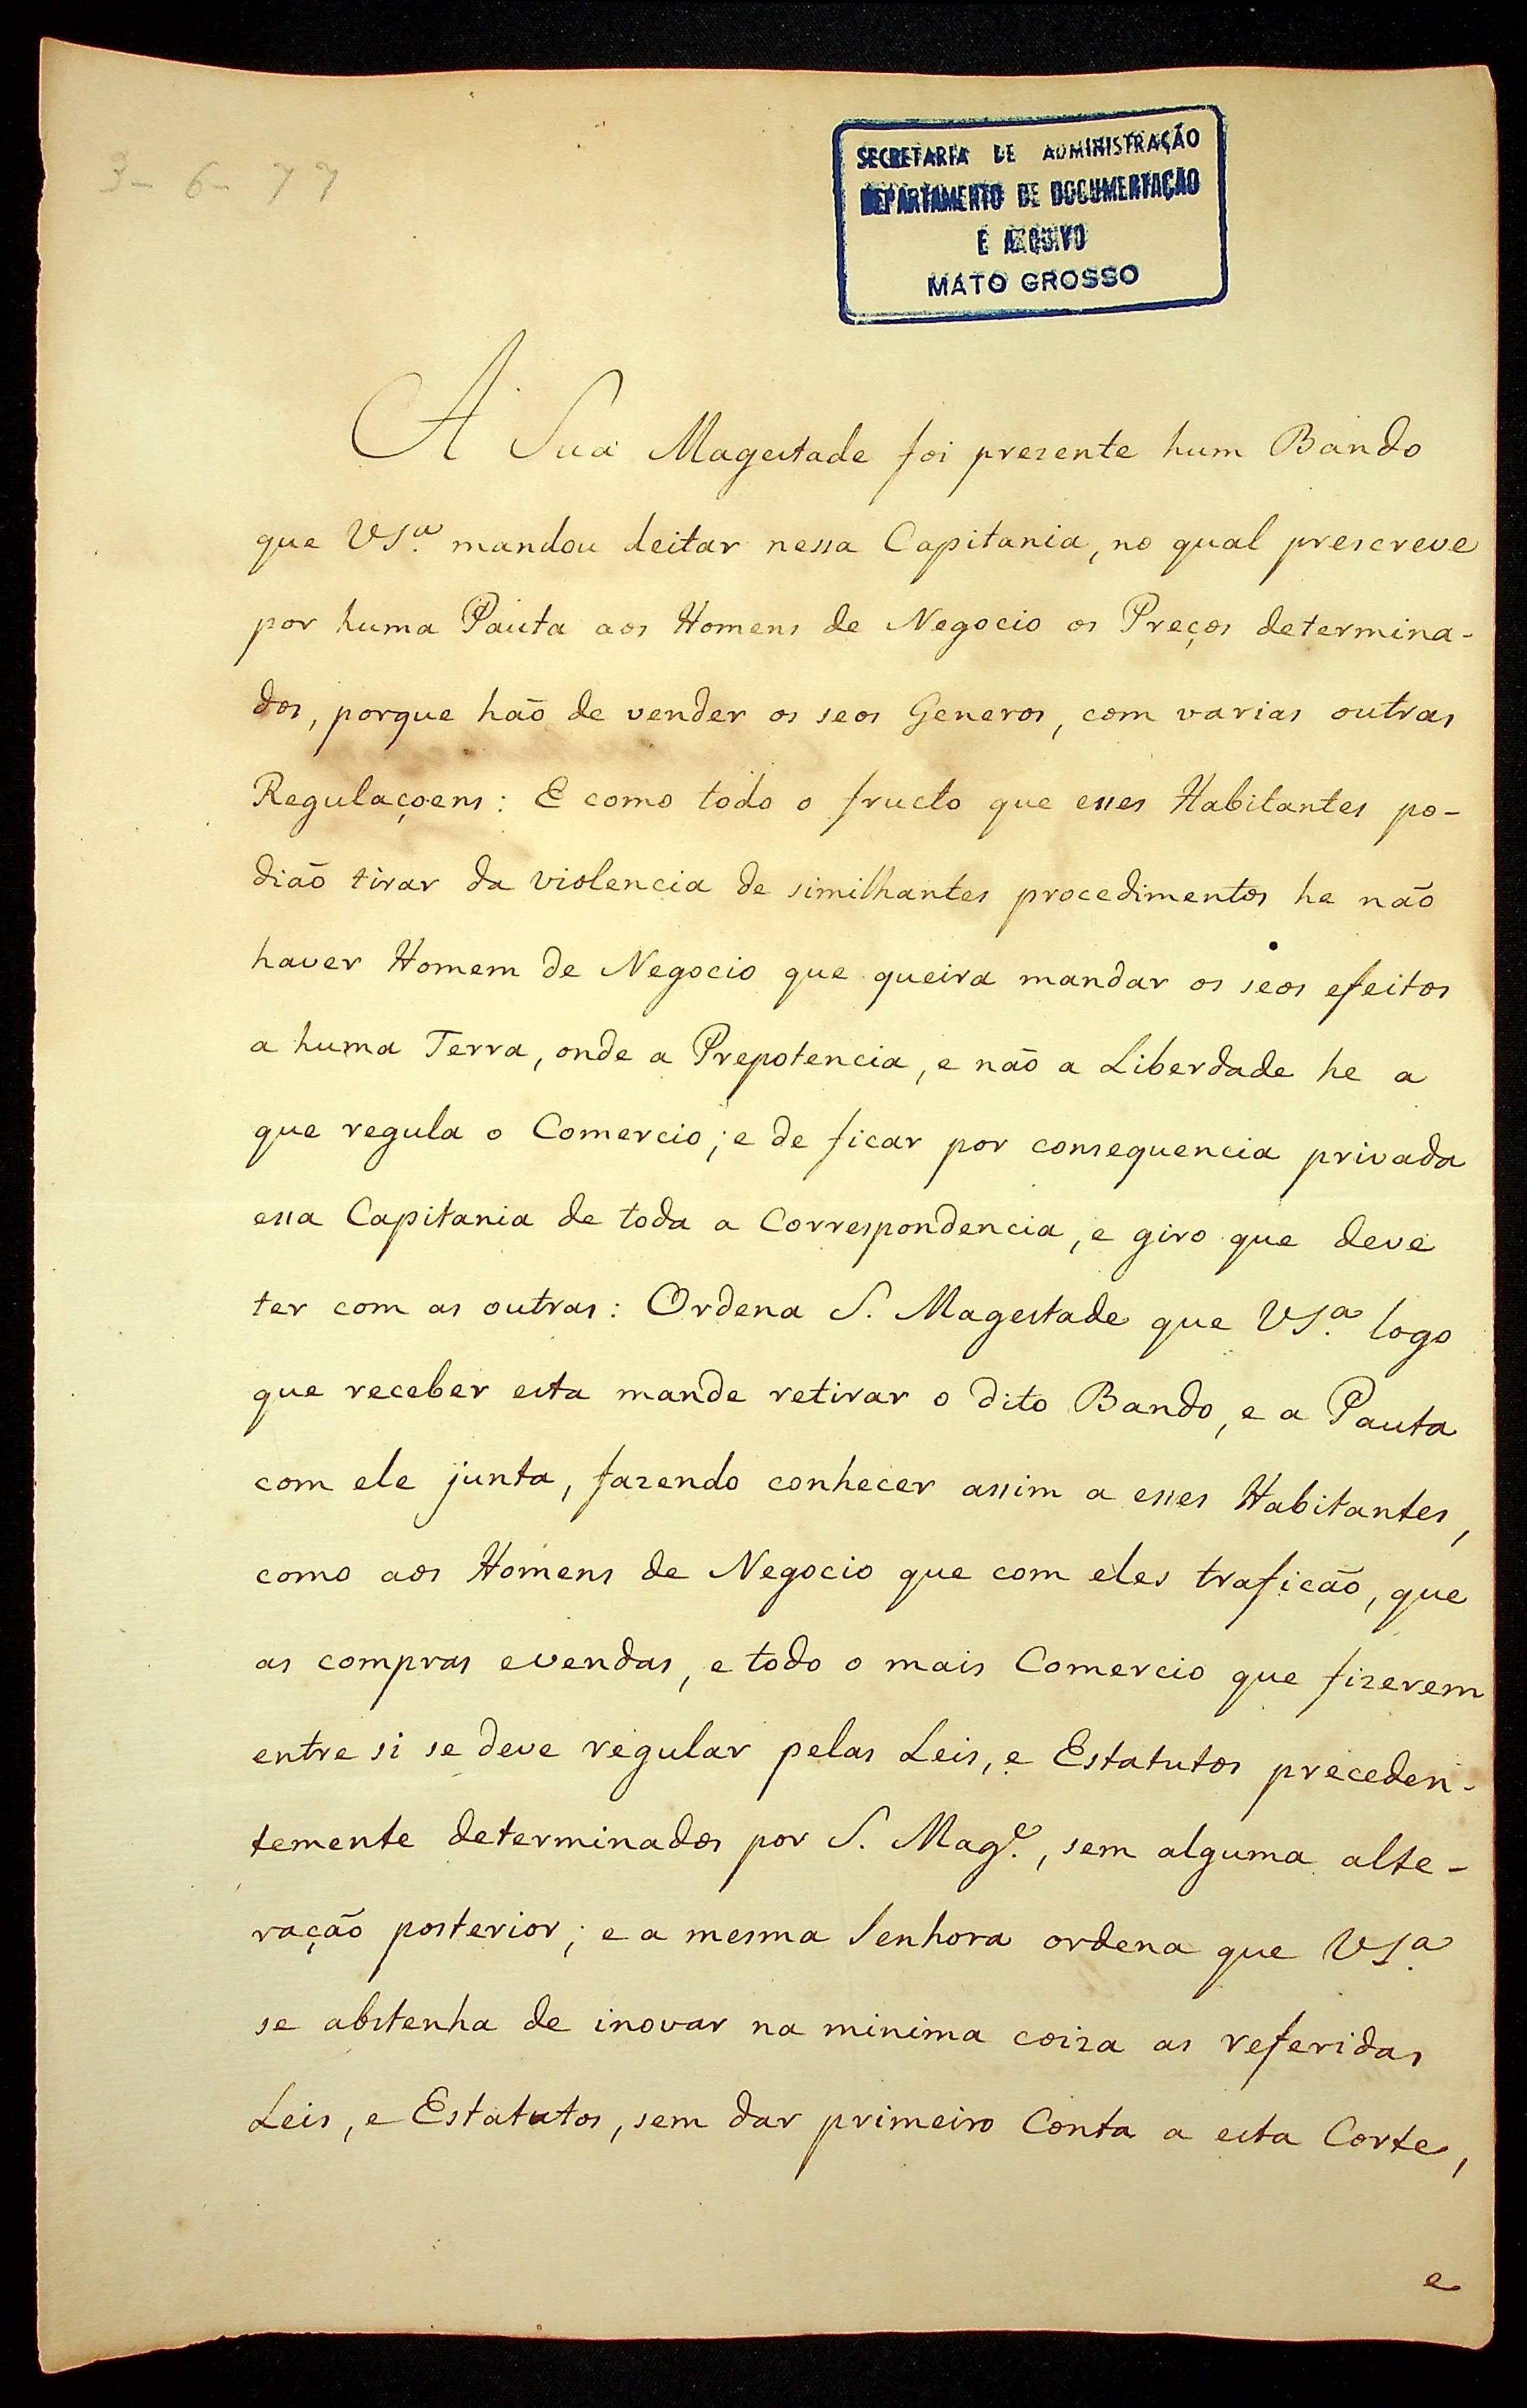 3-6-77
SECRETARIA DE ADMINISTRAÇÃO
DEPARTAMENTO DE DOCUMENTAÇÃO
E ARQUIVO
MATO GROSSO
A Sua Magestade foi prezente hum Bando
que VSª. mandou deitar nessa Capitania, no qual prescreve
por huma Pauta aos Homens de Negocio os Preços determina-
dos, porque hão de vender os seos Generos, com varias outras
Regulaçoens: E como todo o fructo que esses Habitantes po-
dião tirar da violencia de similhantes procedimentos he não
haver Homem de Negocio que queira mandar os seos efeitos
a huma Terra, onde a Prepotencia, e não a Liberdade he a
que regula o Comercio; e de ficar por consequencia privada
essa Capitania de toda a Correspondencia, e giro que deve
ter com as outras: Ordena S. Magestade que VSª. logo
que receber esta mande retirar o dito Bando, e a Pauta
com ele junta, fazendo conhecer assim a esses Habitantes,
como aos Homens de Negocio que com eles traficão, que
as compras evendas, e todo o mais Comercio que fizerem
entre si se deve regular pelas Leis, e Estatutos preceden-
temente determinados por S. Mag.e, sem alguma alte-
ração posterior; e a mesma Senhora ordena que VSª.
se abstenha de inovar na minima coiza as referidas
Leis, e Estatutos, sem dar primeiro Conta a esta Corte,
e